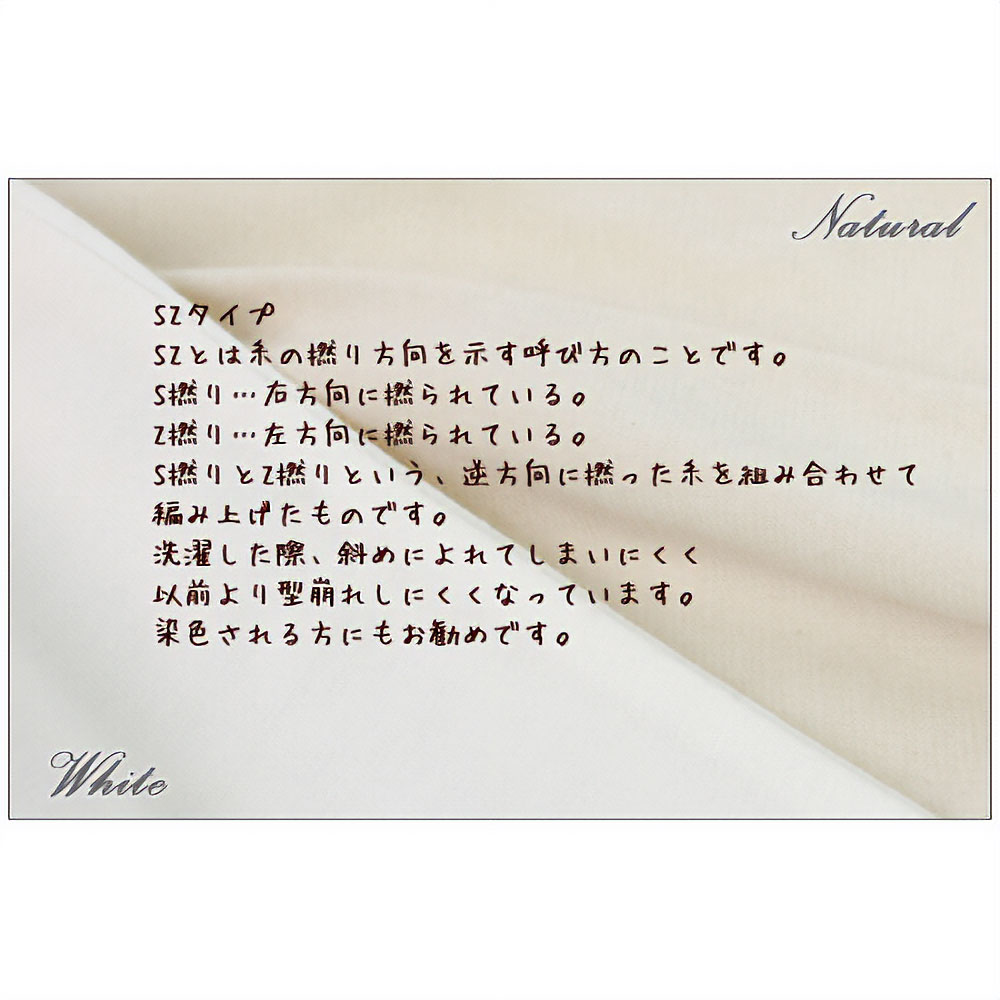 Natural
SZタイプ
SZとは糸の撚り方向を示す呼び方のことです。
S撚り…右方向に撚られている。
Z撚り…左方向に撚られている。
S撚りとZ撚りという、逆方向に撚った糸を組み合わせて
編み上げたものです。
洗濯した際、斜めによれてしまいにくく
以前より型崩れしにくくなっています。
染色される方にもお勧めです。
White